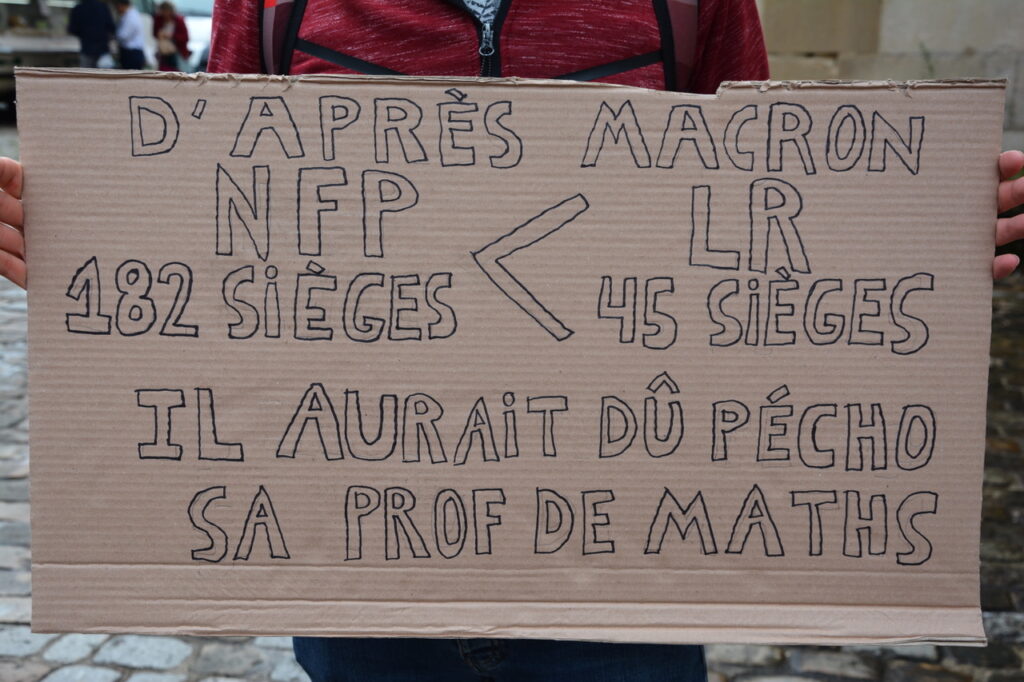 D'APRÈS MACRON
NFP < LR
182 SiÈGES 45 SiÈGES
IL AURAiT DÛ PÉCHO
SA PROF DE MATHS